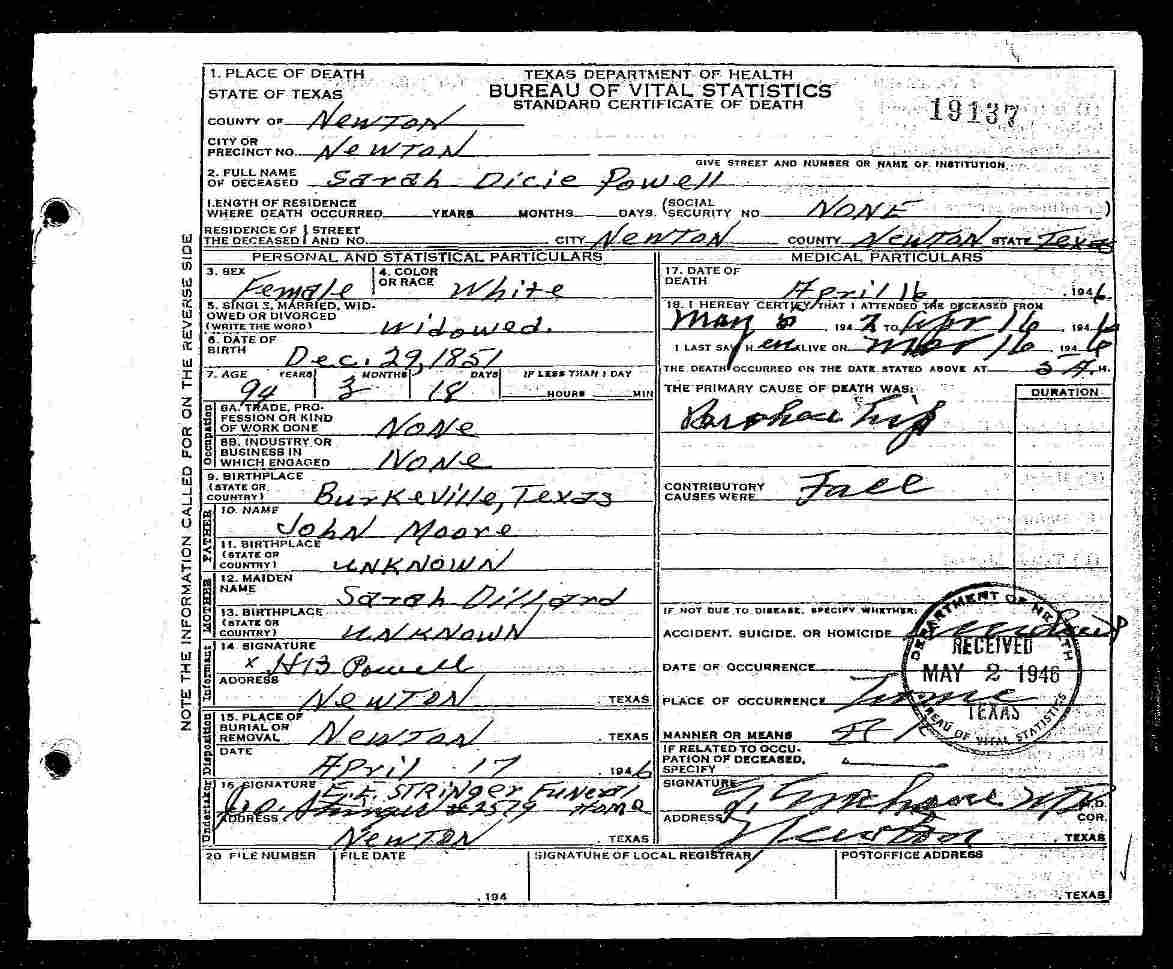 1. PLACE OF DEATH
STATE OF TEXAS
TEXAS DEPARTMENT OF HEALTH
BUREAU OF VITAL STATISTICS
STANDARD CERTIFICATE OF DEATH
19137
COUNTY OF Newton
CITY OR
PRECINCT NO. Newton
GIVE STREET AND NUMBER OR NAME OF INSTITUTION
2. FULL NAME
OF DECEASED Sarah Dicie Powell
LENGTH OF RESIDENCE
WHERE DEATH OCCURRED YEARS MONTHS DAYS. (SOCIAL SECURITY NO. NONE)
RESIDENCE OF THE DECEASED STREET AND NO. CITY Newton COUNTY Newton STATE Texas
PERSONAL AND STATISTICAL PARTICULARS
3. SEX Female
4. COLOR OR RACE White
5. SINGLE, MARRIED, WID-
OWED OR DIVORCED
(WRITE THE WORD) Widowed.
6. DATE OF
BIRTH Dec. 29, 1851
7. AGE YEARS MONTHS DAYS IF LESS THAN 1 DAY
94 3 18 HOURS MIN
Occupation
8A. TRADE, PRO-
FESSION OR KIND
OF WORK DONE None
8B. INDUSTRY OR
BUSINESS IN
WHICH ENGAGED None
9. BIRTHPLACE
(STATE OR
COUNTRY) Burkeville, Texas
FATHER
10. NAME
John Moore
11. BIRTHPLACE
(STATE OR
COUNTRY) UNKNOWN
MOTHER
12. MAIDEN
NAME Sarah Dillard
13. BIRTHPLACE
(STATE OR
COUNTRY) UNKNOWN
Informant
14 SIGNATURE
x HB Powell
ADDRESS
Newton , TEXAS
Disposition
15. PLACE OF
BURIAL OR
REMOVAL Newton , TEXAS
DATE
April 17 , 1946
Undertaker
16 SIGNATURE E.E. Stringer Funeral
Stringer #2579 Home
ADDRESS
Newton , TEXAS
MEDICAL PARTICULARS
17. DATE OF
DEATH April 16 , 1946
18. I HEREBY CERTIFY THAT I ATTENDED THE DECEASED FROM
May , 194 to Apr 16 , 1946
I LAST SAW H er ALIVE ON Mar 16 1946
THE DEATH OCCURRED ON THE DATE STATED ABOVE AT 5 A. M.
THE PRIMARY CAUSE OF DEATH WAS: DURATION
CONTRIBUTORY
CAUSES WERE Fall
IF NOT DUE TO DISEASE, SPECIFY WHETHER:
ACCIDENT, SUICIDE, OR HOMICIDE
DATE OF OCCURRENCE
PLACE OF OCCURRENCE
MANNER OR MEANS
IF RELATED TO OCCU-
PATION OF DECEASED,
SPECIFY
SIGNATURE M.D.
ADDRESS Newton COR.
, TEXAS
DEPARTMENT OF HEALTH
RECEIVED
MAY 2 1946
TEXAS
BUREAU OF VITAL STATISTICS
20 FILE NUMBER FILE DATE SIGNATURE OF LOCAL REGISTRAR POSTOFFICE ADDRESS
, 194 , TEXAS
NOTE THE INFORMATION CALLED FOR ON THE REVERSE SIDE